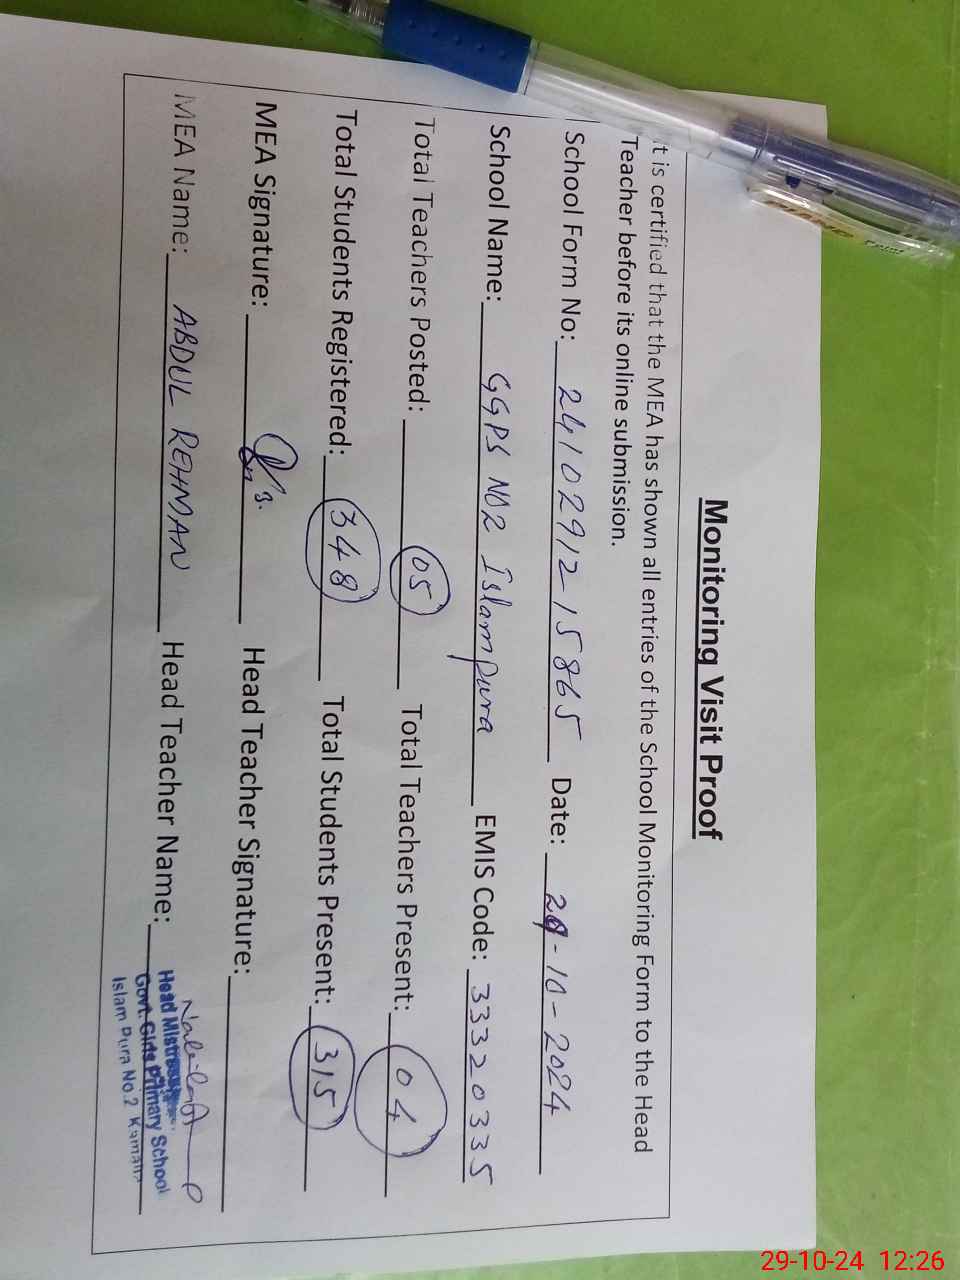 Monitoring Visit Proof
It is certified that the MEA has shown all entries of the School Monitoring Form to the Head
Teacher before its online submission.
School Form No: 2410291215865 Date: 29-10-2024
School Name: GGPS NO2 Islampura EMIS Code: 33320335
Total Teachers Posted: 05 Total Teachers Present: 04
Total Students Registered: 348 Total Students Present: 315
MEA Signature: Head Teacher Signature:
MEA Name: ABDUL REHMAN Head Teacher Name:
Head Mistress
Govt. Girls Primary School
Islam Pura No.2
PIANO
29-10-24 12:26